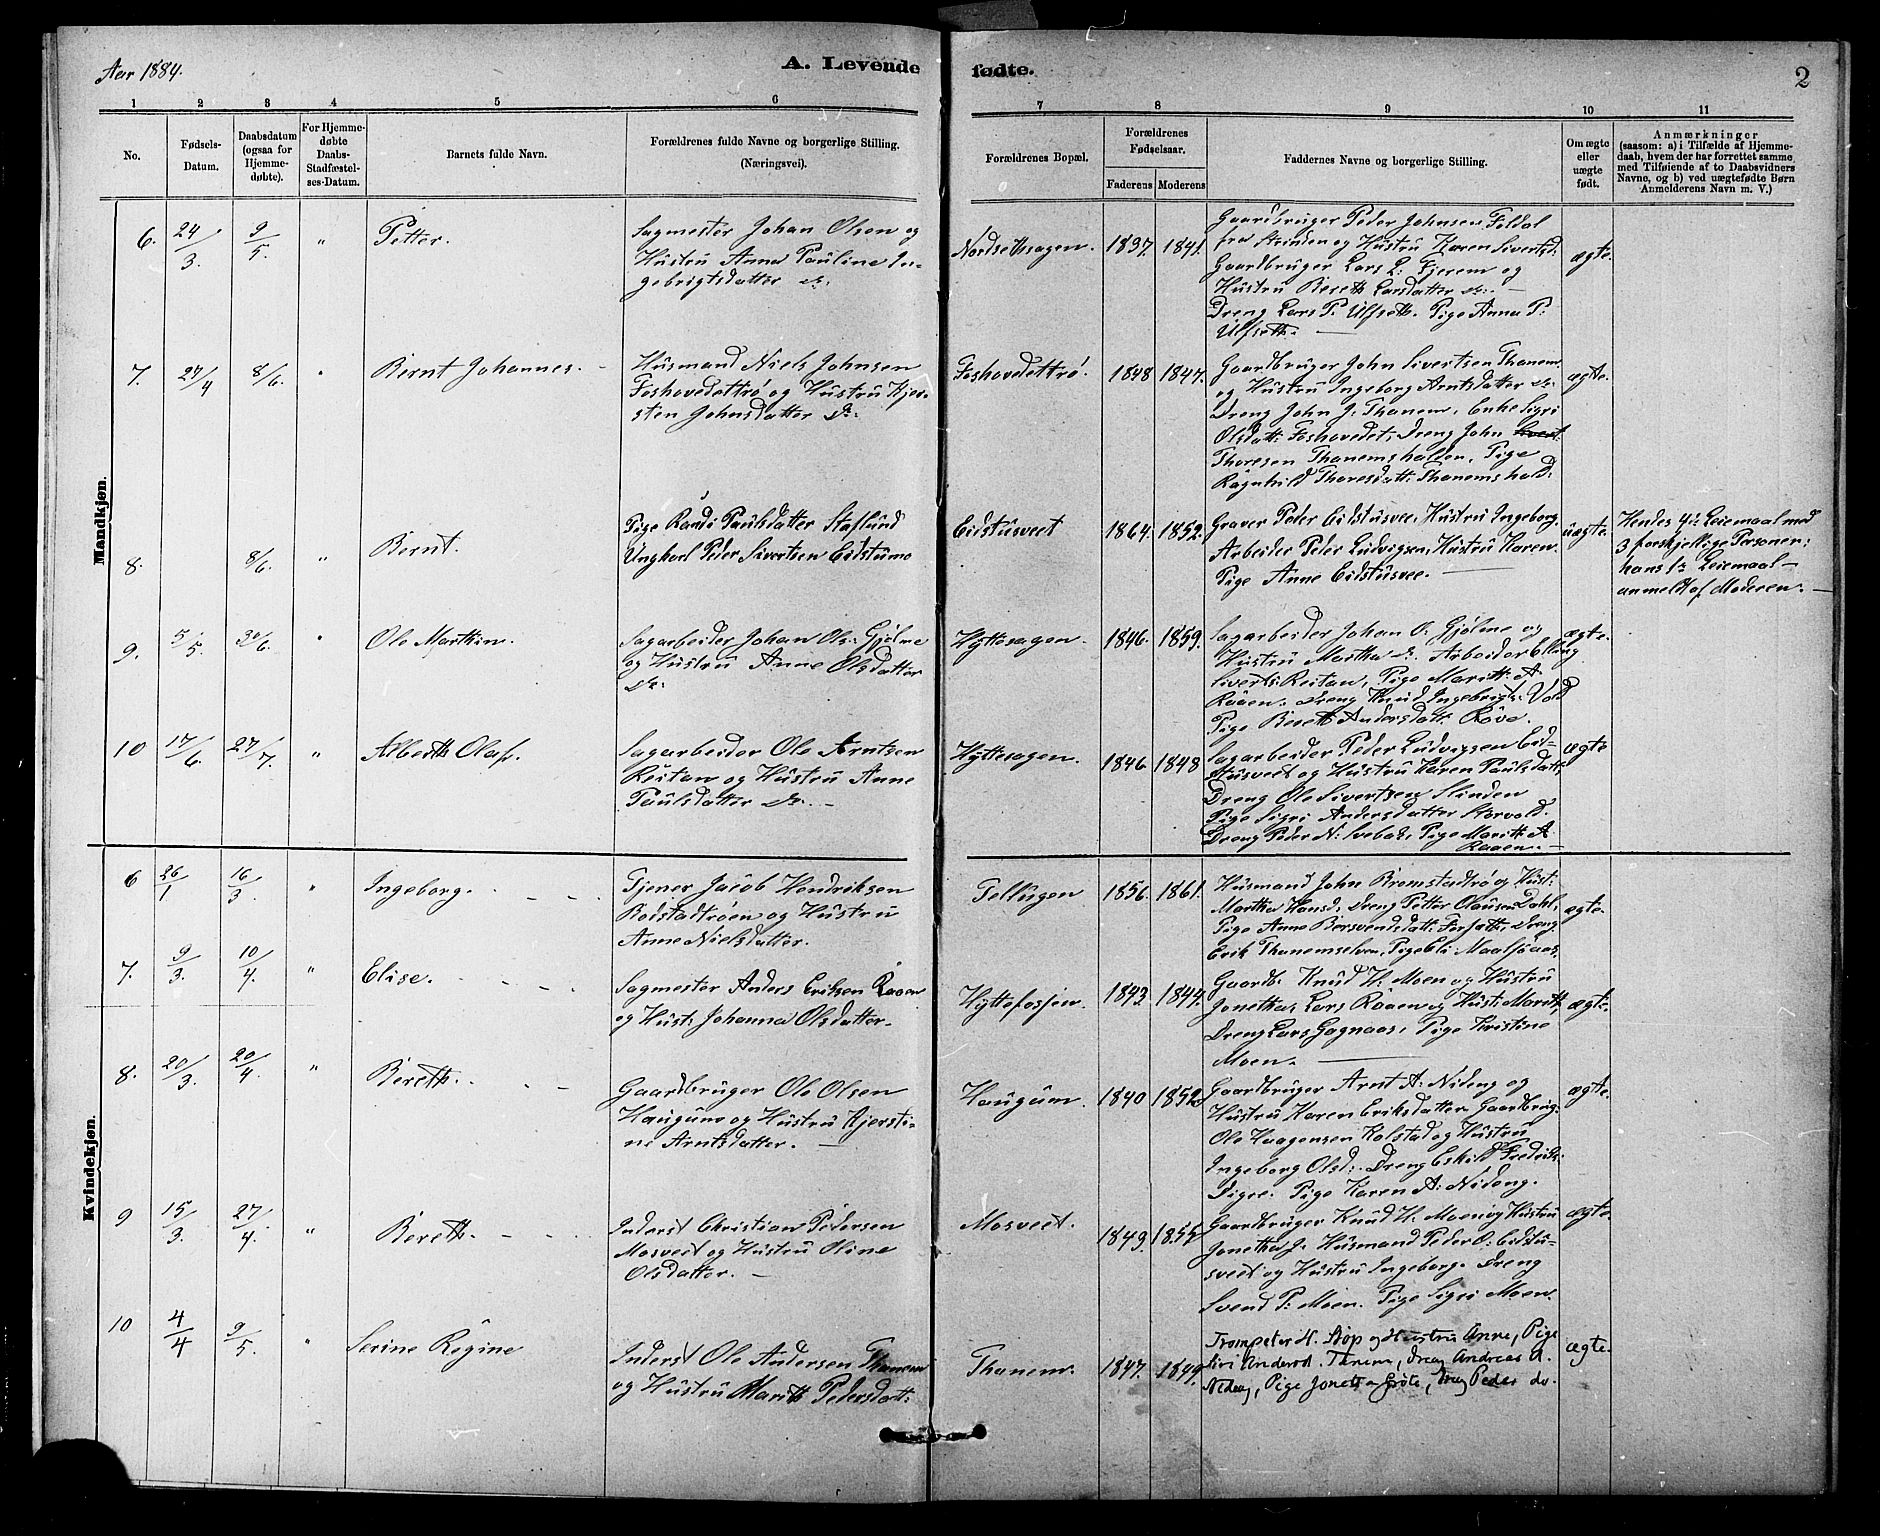 Aar 1884.
A. Levende fødte.
2
1 2 3 4 5 6 7 8 9 10 11
No.
Fødsels-
Datum.
Daabsdatum
(ogsaa for
Hjemme-
døbte).
For Hjemme-
døbte
Daabs-
Stadfæstel-
ses-Datum.
Barnets fulde Navn.
Forældrenes fulde Navne og borgerlige Stilling.
(Næringsvei).
Forældrenes Bopæl.
Forældrenes
Fødselsaar.
Faderens Moderens
Faddernes Navne og borgerlige Stilling.
Om ægte
eller
uægte
født.
Anmærkninger
(saasom: a) i Tilfælde af Hjemme-
daab, hvem der har forrettet samme
med Tilføiende af to Daabsvidners
Navne, og b) ved uægtefødte Børn
Anmelderens Navn m. V.)
Mandkjøn.
6. 24/3. 9/5. „ Petter.
Sagmester Johan Olsen og
Hustru Anna Pauline In-
gebrigtsdatter
Nordsetsagen. 1841.
Gaardbruger Peder Johnsen
fra Strinden og Hustru Karen Sivertsd:
Gaardbruger Lars L: Fjerem og
Hustru Bereth Larsdatter
Dreng Lars P. Ulfseth. Pige Anna P:
Ulfseth.
ægte.
7. 27/4 8/6. „ Bernt Johannes.
Husmand Niels Johnsen
Foshovedettrø og Hustru Kjer-
sten Johnsdatter
Foshovedettrø. 1848 1847.
Gaardbruger John Sivertsen Thanem
og Hustru Ingeborg Arntsdatter
Dreng John J: Thanem, Enke Sigri
Olsdatt: Foshovedet, Dreng John
Thoresen Thanemshallen, Pige
Ragnhild Thoresdatt: Thanemshald:
ægte.
8. 8/6. „ Bernt.
Pige Randi Paulsdatter Staflund
Ungkarl Peder Sivertsen Eidstumo
Eidstusveet 1864. 1852.
Graver Peder Eidstusvee, Hustru Ingeborg.
Arbeider Peder Ludvigsen, Hustru Karen.
Pige Anne Eidstusvee.
uægte.
Hendes 4de Leiemaal med
3 forskjellige Personer;
hans 1ste Leiemaal
anmeldt af Moderen.
9. 5/5. 30/6. „ Ole Marthin.
Sagarbeider Johan Ols: Gjølme
og Hustru Anne Olsdatter
Hyttesagen. 1846. 1859.
Sagarbeider Johan O: Gjølme og
Hustru Martha Arbeider Elling
Siverts: Reitan, Pige Marith A
Raaen. Dreng Knud Ingebrigts: Vold
Pige Bereth Andersdatt: Røve.
ægte.
10 17/6. 27/7. „ Alberth Olaf.
Sagarbeider Ole Arntsen
Reitan og Hustru Anne
Paulsdatter
Hyttesagen. 1846 1848
Sagarbeider Peder Ludvigsen Eid-
stusveet og Hustru Karen Paulsdatt:
Dreng Ole Sivertsen Slinden
Pige Sigri Andersdatter Storvold.
Dreng Peder N: Pige Marith A
Raaen.
ægte
Kvindekjøn.
6 26/1 16/3. „ Ingeborg.
Tjener Jacob Hendriksen
Rodstadtrøen og Hustru
Anne Nielsdatter.
Tellugen 1856. 1861.
Husmand John Bromstadtrø og Hust:
Martha Hansd; Dreng Petter Olausen Dahl,
Pige Anne Dreng
Erik Thanemselven, Pige Eli Maalsjøaas.
ægte.
7. 9/3. 10/4. „ Elise.
Sagmester Anders Eriksen Raaen
og Hust: Johanna Olsdatter.
Hyttefossen. 1843. 1844.
Gaardb: Knud H: Moen og Hustru
Jonetha; Lars Raaen og Hust: Marith,
Dreng Lars Gagnaas, Pige Kristine
Moen.
ægte.
8. 20/3. 20/4. „ Bereth.
Gaardbruger Ole Olsen
Haugum og Hustru Kjersti-
ne Arntsdatter.
Haugum. 1840 1852
Gaardbruger Arnt A: Nideng og
Hustru Karen Eriksdatter Gaardbrug:
Ole Haagensen Kolstad og Hustru
Ingeborg Olsd: Dreng Eskild Fredrik:
Digre. Pige Karen A: Nideng.
ægte.
9 15/3. 27/4. „ Bereth.
Inderst Christian Pedersen
Mosveet og Hustru Oline
Olsdatter.
Mosveet. 1849.
Gaardbruger Knud H. Moen og Hustru
Jonetha J. Husmand Peder O: Eidstu-
sveet og Hustru Ingeborg. Dreng
Svend P: Moen. Pige Sigri Moen.
ægte.
10 4/4 9/5. „ Serine Regine
Inderst Ole Andersen Thanem
og Hustru Marith Pedersdatt:
Thanem. 1847. 1849.
Trompeter H. Stop og Hustru Anne, Pige
Siri Andersd. Tanem, Dreng Andreas A.
Nideng, Pige Jonetta Grøte, Dreng Peder do.
ægte.